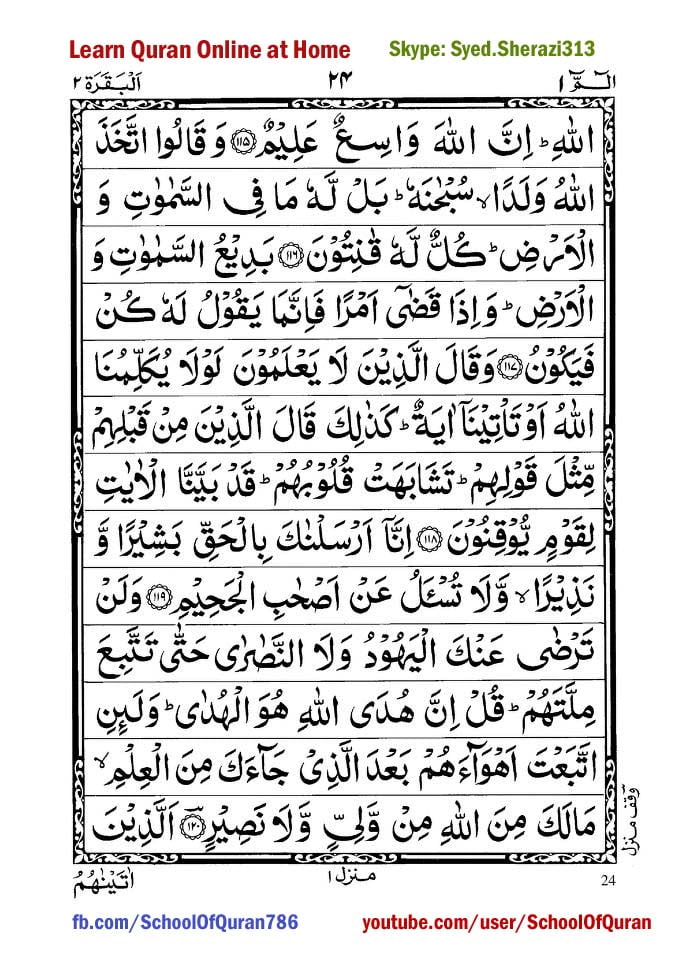 Learn Quran Online at Home Skype: Syed.Sherazi313
الٓمّٓ ١ ٢٤ اَلْبَقَرَة ٢
اللّٰهِ ؕ اِنَّ اللّٰهَ وَاسِعٌ عَلِیْمٌ ﴿۱۱۵﴾ وَ قَالُوا اتَّخَذَ
اللّٰهُ وَلَدًا ۙ سُبْحٰنَهٗ ؕ بَلْ لَّهٗ مَا فِی السَّمٰوٰتِ وَ
الْاَرْضِ ؕ كُلٌّ لَّهٗ قٰنِتُوْنَ ﴿۱۱۶﴾ بَدِیْعُ السَّمٰوٰتِ وَ
الْاَرْضِ ؕ وَ اِذَا قَضٰۤی اَمْرًا فَاِنَّمَا یَقُوْلُ لَهٗ كُنْ
فَیَكُوْنُ ﴿۱۱۷﴾ وَقَالَ الَّذِیْنَ لَا یَعْلَمُوْنَ لَوْلَا یُكَلِّمُنَا
اللّٰهُ اَوْ تَاْتِیْنَاۤ اٰیَةٌ ؕ كَذٰلِكَ قَالَ الَّذِیْنَ مِنْ قَبْلِهِمْ
مِّثْلَ قَوْلِهِمْ ؕ تَشَابَهَتْ قُلُوْبُهُمْ ؕ قَدْ بَیَّنَّا الْاٰیٰتِ
لِقَوْمٍ یُّوْقِنُوْنَ ﴿۱۱۸﴾ اِنَّاۤ اَرْسَلْنٰكَ بِالْحَقِّ بَشِیْرًا وَّ
نَذِیْرًا ۙ وَّلَا تُسْـَٔلُ عَنْ اَصْحٰبِ الْجَحِیْمِ ﴿۱۱۹﴾ وَلَنْ
تَرْضٰی عَنْكَ الْیَهُوْدُ وَلَا النَّصٰرٰی حَتّٰی تَتَّبِعَ
مِلَّتَهُمْ ؕ قُلْ اِنَّ هُدَی اللّٰهِ هُوَ الْهُدٰی ؕ وَلَىِٕنِ
اتَّبَعْتَ اَهْوَآءَهُمْ بَعْدَ الَّذِیْ جَآءَكَ مِنَ الْعِلْمِ ۙ
مَالَكَ مِنَ اللّٰهِ مِنْ وَّلِیٍّ وَّلَا نَصِیْرٍ ﴿۱۲۰﴾ اَلَّذِیْنَ
وقف منزل
24 منزل ١ اٰتَیْنٰهُمُ
fb.com/SchoolOfQuran786 youtube.com/user/SchoolOfQuran